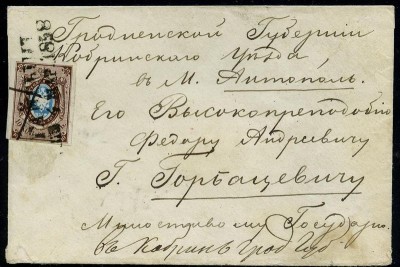 1858
Гродненской Губернии
Кобринскаго Уѣзда,
въ М. Антополь.
Его Высокопреподобію
Федору Андреевичу
Г. Горбацевичу
Милостивому Государю
въ Кобринъ Грод Губ